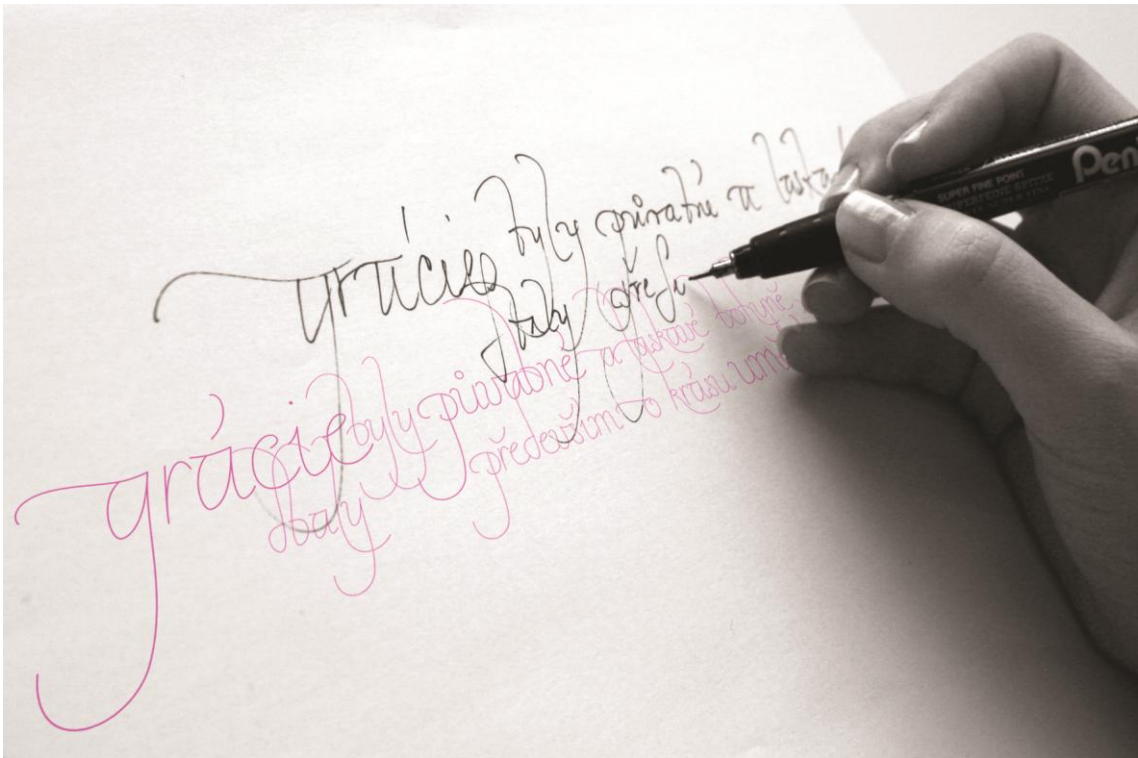 grácie byly půvabné a laska
dbaly
grácie byly půvabné a laskavé bohyně
dbaly především o krásu
Pen
SUPER FINE POINT